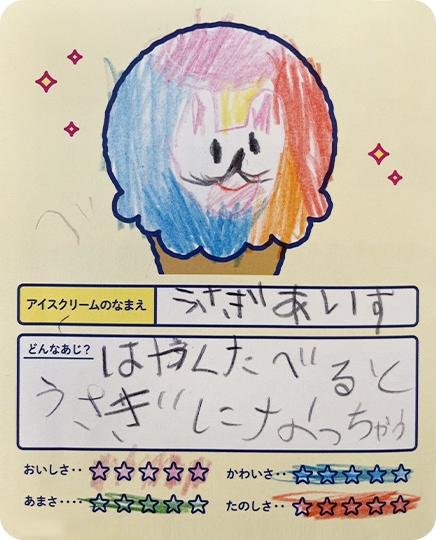 アイスクリームのなまえ
うさぎあいす
どんなあじ?
はやくたべると
うさぎになっちゃう
おいしさ‥ ☆☆☆☆☆
かわいさ‥ ☆☆☆☆☆
あまさ‥‥ ☆☆☆☆☆
たのしさ‥ ☆☆☆☆☆